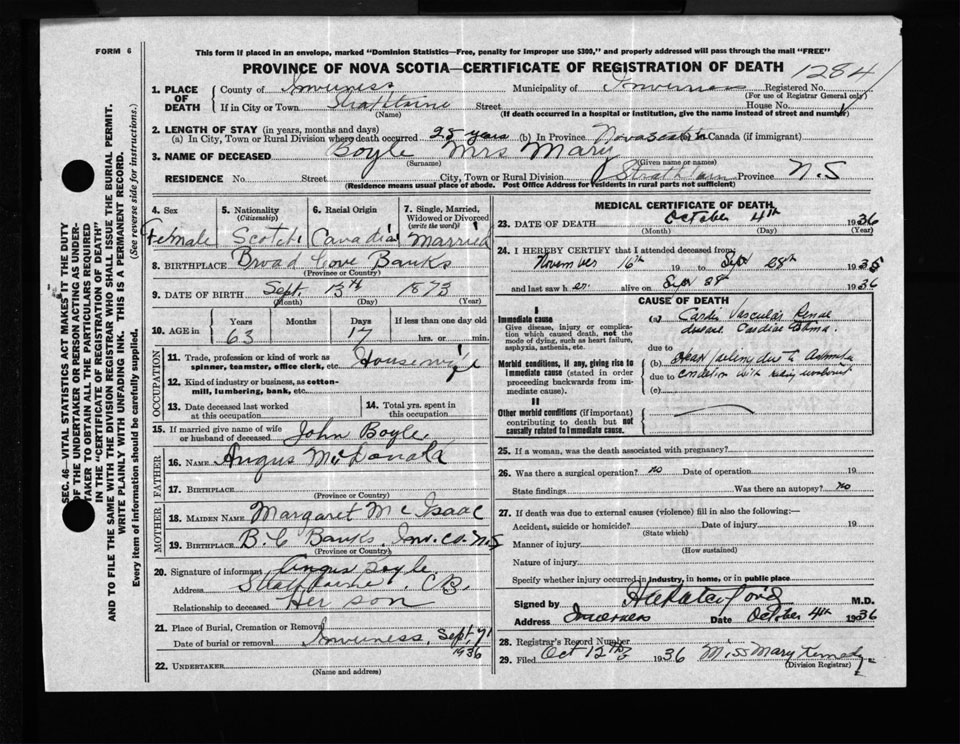 FORM 6
This form if placed in an envelope, marked "Dominion Statistics—Free, penalty for improper use $300," and properly addressed will pass through the mail "FREE"
PROVINCE OF NOVA SCOTIA—CERTIFICATE OF REGISTRATION OF DEATH
1284
1. PLACE OF DEATH
County of Inverness Municipality of Inverness Registered No.
(For use of Registrar General only)
If in City or Town Strathlorne Street House No.
(Name) (If death occurred in a hospital or institution, give the name instead of street and number)
2. LENGTH OF STAY (in years, months and days)
(a) In City, Town or Rural Division where death occurred 28 years (b) In Province Nova Scotia Canada (if immigrant)
3. NAME OF DECEASED Boyle Mrs Mary
(Surname) (Given name or names)
RESIDENCE No. Street City, Town or Rural Division Province N.S
(Residence means usual place of abode. Post Office Address for residents in rural parts not sufficient)
4. Sex
Female
5. Nationality
(Citizenship)
Scotch
6. Racial Origin
Canadia
7. Single, Married, Widowed or Divorced
(write the word)
Married
8. BIRTHPLACE Broad Cove Banks
(Province or Country)
9. DATE OF BIRTH Sept. 13th 1873
(Month) (Day) (Year)
10. AGE in
Years Months Days If less than one day old
63 17 hrs. or min.
OCCUPATION
11. Trade, profession or kind of work as spinner, teamster, office clerk, etc. Housewife
12. Kind of industry or business, as cotton-mill, lumbering, bank, etc.
13. Date deceased last worked at this occupation
14. Total yrs. spent in this occupation
15. If married give name of wife or husband of deceased John Boyle
FATHER
16. NAME Angus McDonald
17. BIRTHPLACE
(Province or Country)
MOTHER
18. MAIDEN NAME Margaret Mc Isaac
19. BIRTHPLACE B.C Banks. Inv. Co. N.S
(Province or Country)
20. Signature of informant Angus Boyle.
Address Strathlorne C.B.
Relationship to deceased Her son
21. Place of Burial, Cremation or Removal Inverness
Date of burial or removal Sept.
1936
22. UNDERTAKER
(Name and address)
MEDICAL CERTIFICATE OF DEATH
23. DATE OF DEATH October 4th 1936
(Month) (Day) (Year)
24. I HEREBY CERTIFY that I attended deceased from:
November 16th 19 to Sept 28th 1935
and last saw her alive on Sept 28th 1936
CAUSE OF DEATH
I
Immediate cause
Give disease, injury or complication which caused death, not the mode of dying, such as heart failure, asphyxia, asthenia, etc.
(a) Cardio Vascular Renal
disease. Cardiac
due to
Morbid conditions, if any, giving rise to immediate cause (stated in order proceeding backwards from immediate cause).
(b) due to
due to condition
(c)
II
Other morbid conditions (if important) contributing to death but not causally related to immediate cause.
25. If a woman, was the death associated with pregnancy?
26. Was there a surgical operation? no Date of operation 19
State findings Was there an autopsy? no
27. If death was due to external causes (violence) fill in also the following:—
Accident, suicide or homicide? Date of injury 19
(State which)
Manner of injury
(How sustained)
Nature of injury
Specify whether injury occurred in industry, in home, or in public place
Signed by M.D.
Address Inverness Date October 4th 1936
28. Registrar's Record Number
29. Filed Oct 12th 1936 Miss Mary Kennedy
(Division Registrar)
SEC. 46—VITAL STATISTICS ACT MAKES IT THE DUTY
OF THE UNDERTAKER OR PERSON ACTING AS UNDER-
TAKER TO OBTAIN ALL THE PARTICULARS REQUIRED
IN THE "CERTIFICATE OF REGISTRATION OF DEATH"
AND TO FILE THE SAME WITH THE DIVISION REGISTRAR WHO SHALL ISSUE THE BURIAL PERMIT.
WRITE PLAINLY WITH UNFADING INK. THIS IS A PERMANENT RECORD.
Every item of information should be carefully supplied. (See reverse side for instructions.)